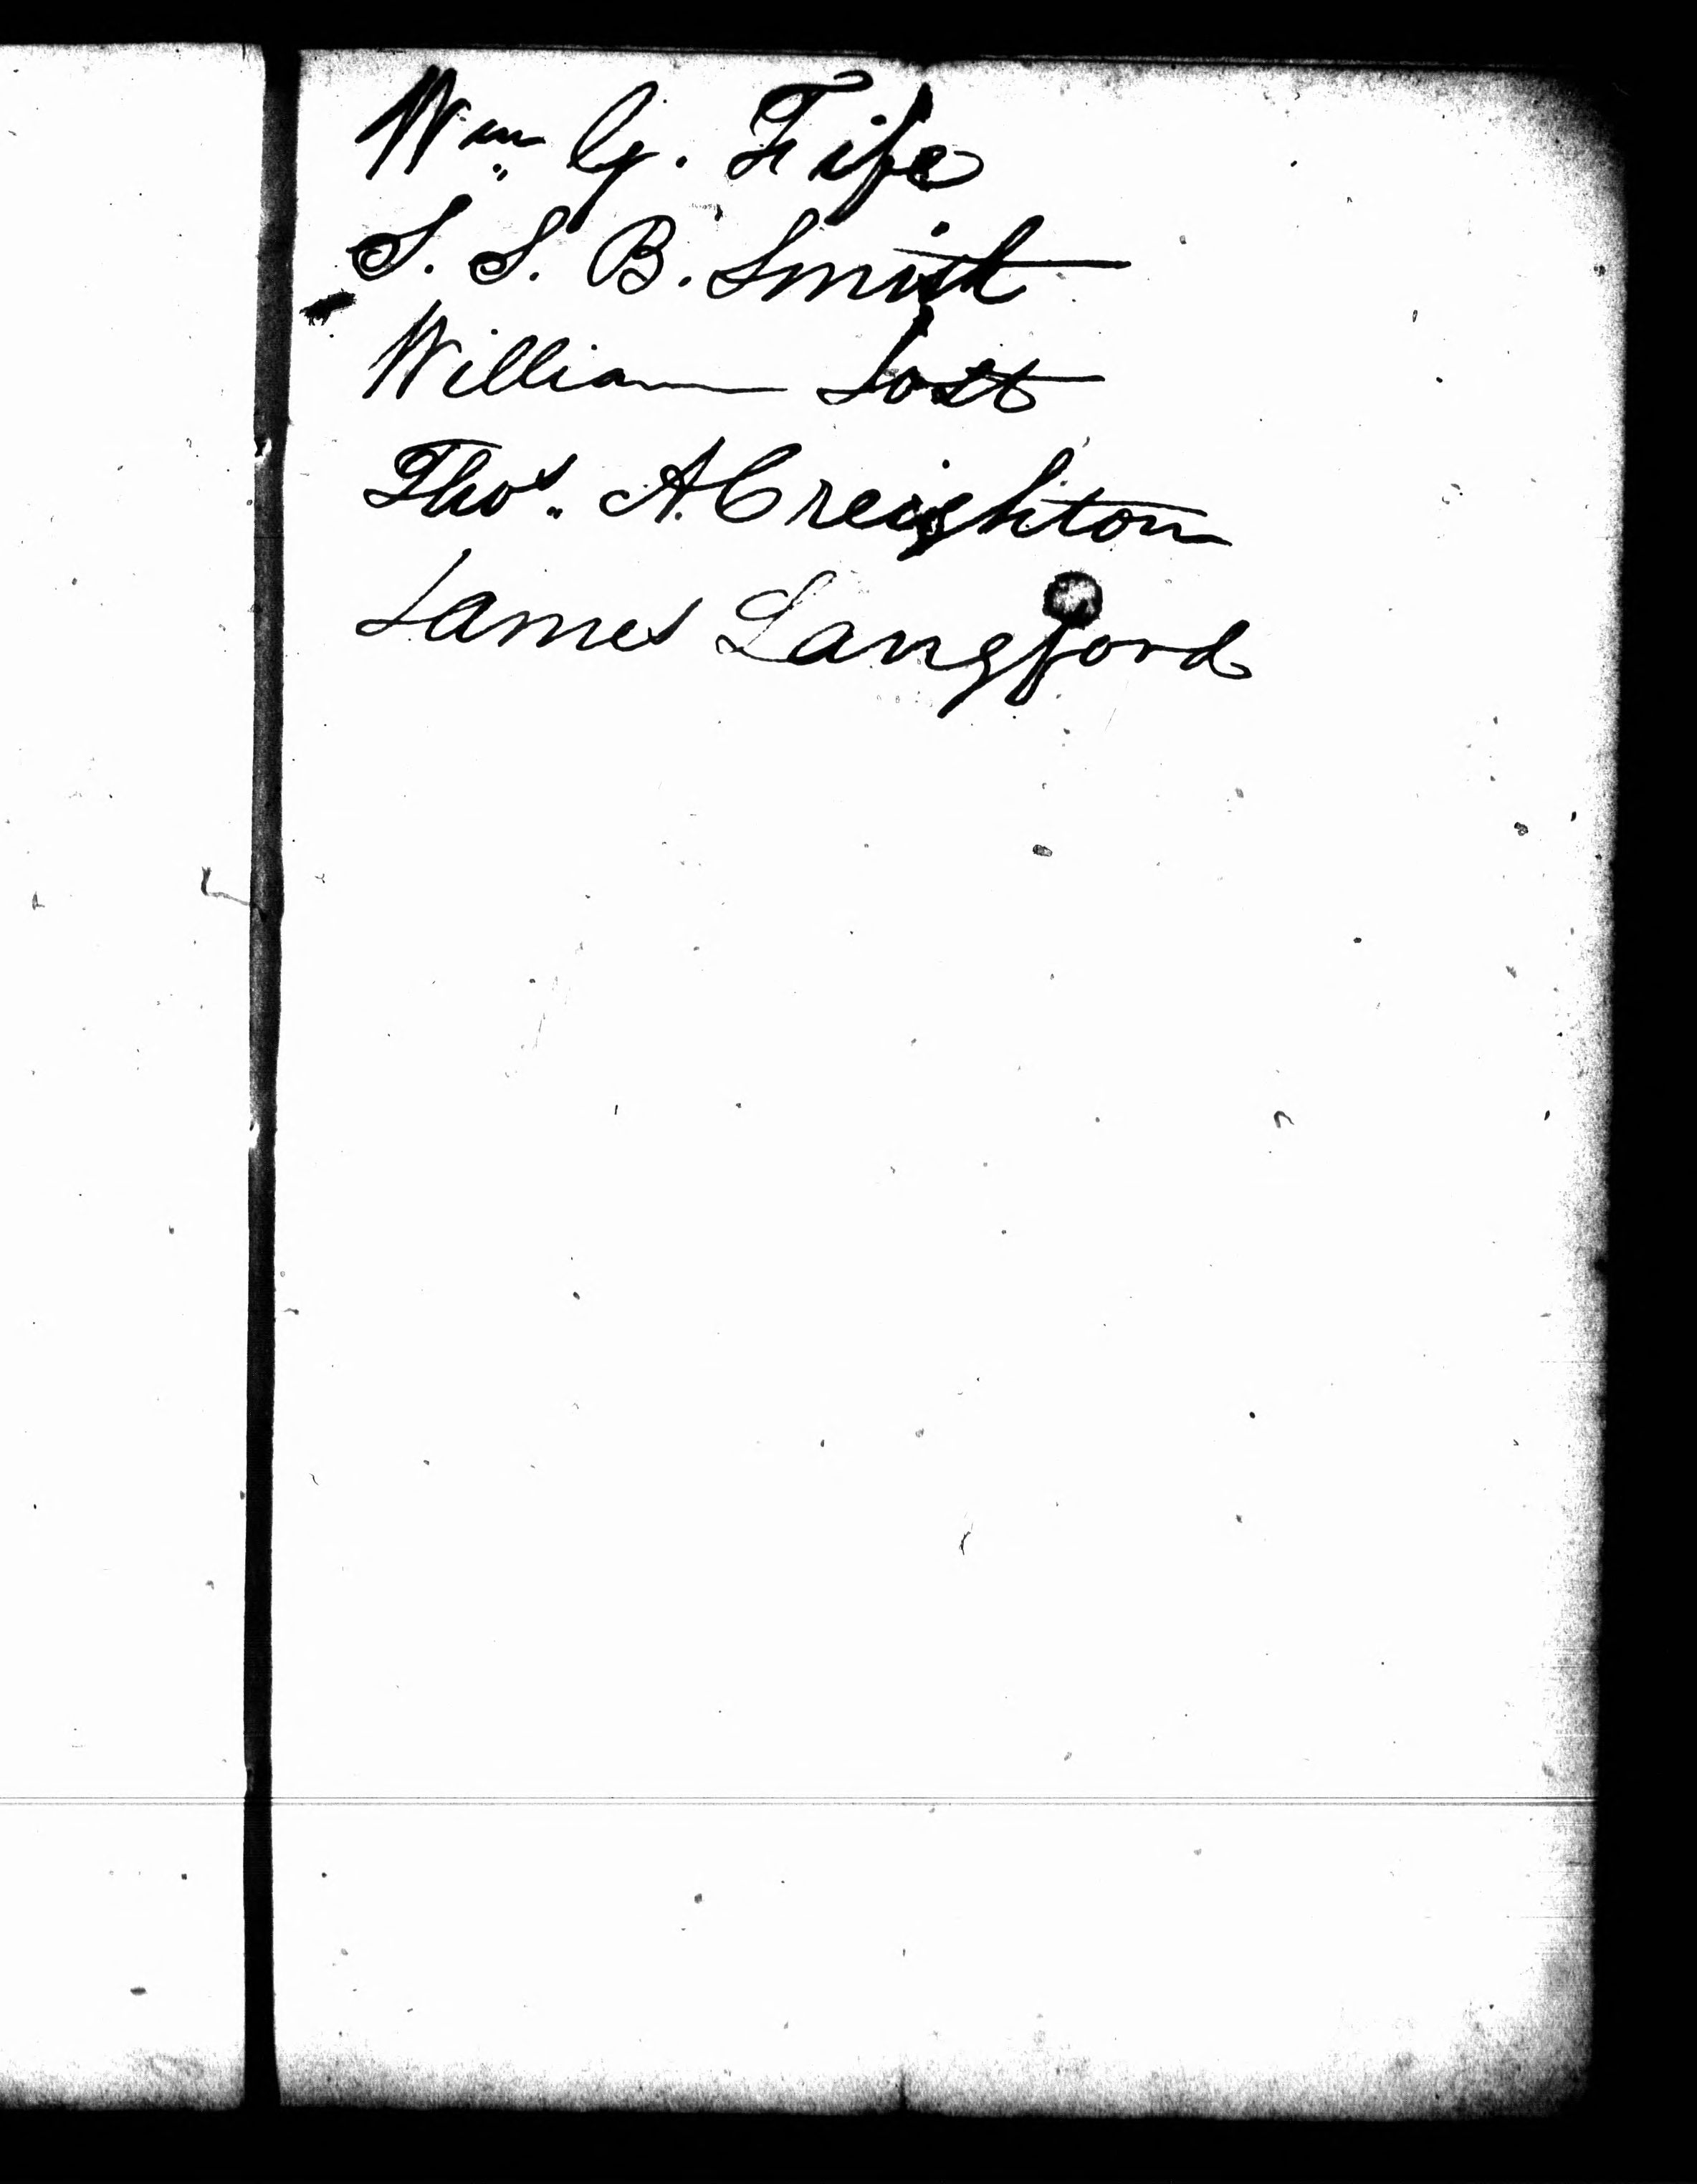 Wm G. Fife
S. S. B. Smith
William Lott
Thos. A. Creighton
James Langford